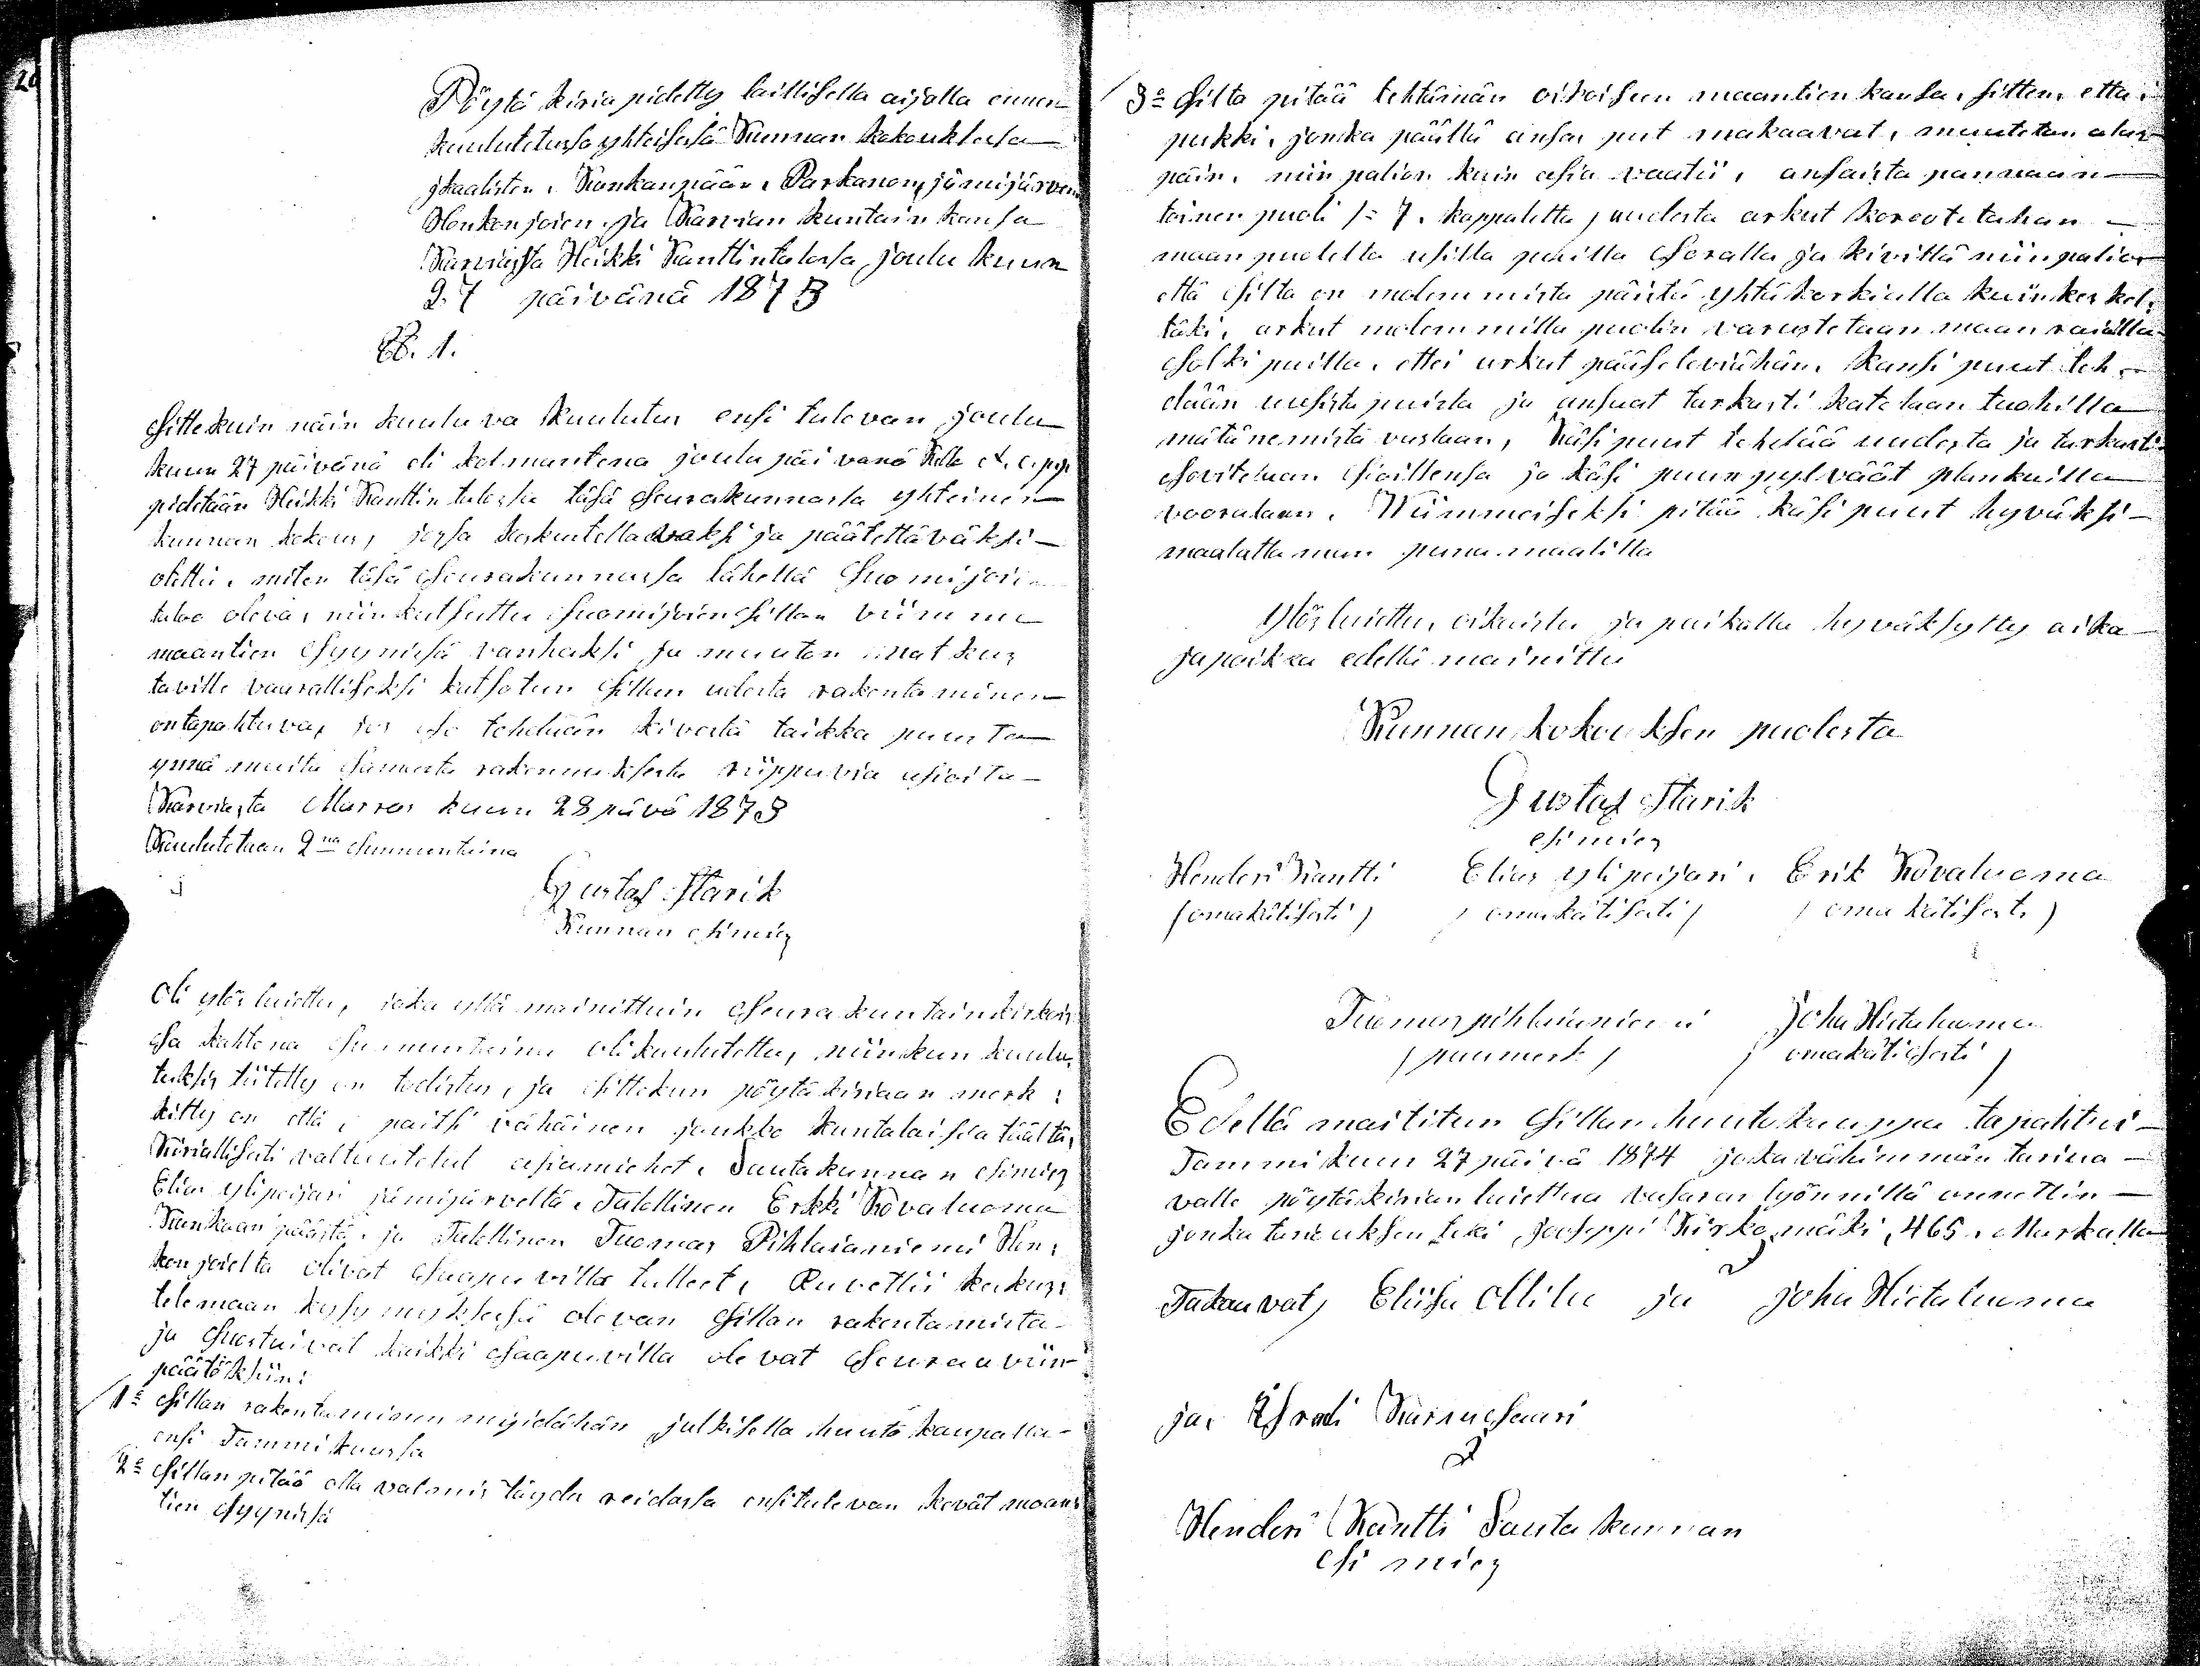 Pöytä kiria pidetty laillisella aijalla ennen
kuulutetussa yhteisesä Kunnan kokouksessa
jkaalisten, Kankanpään, Parkanon, jämijärven
Honkonjoien, ja Karvian kuntain kansa
Karviasta Heikki Kanttin talossa joulu kuun
27 päivänä 1873
§. 1.
Sittekuin näin kuuluva kuulutus ensi tulevan joulu
kuun 27 päivänä eli kolmantena joulu päivänä Kello
pidetään Heikki Kanttin talossa täsä Seurakunnassa yhteinen
kunnan kokous, jossa keskusteltavaksi ja päätettäväksi
otettii, miten täsä Seurakunnassa lähellä Suomijoin
taloo oleva, niin kutsuttu Suomijoien Sillan viimme
maantien Syynisä vanhaksi ja muuton matkus
taville vaaralliseksi katsotun Sillan udesta rakentaminen
on tapahtuva, jos se tehdään kivestä taikka puusta
ynnä muita Samasta rakennuksesta riippuvia asioita
Karviasta Marras kuun 28 pävä 1873
Kuulutetaan 2na Sunnuntaina
Gustaf Starik
Kunnan esimies
Oli ylös luettu, joka yllä mainittuin Seurakuntain kirkois
Sa kahtena Sunnuntaina oli kuulutettu, niinkun kuulu
tuksis tiitetty on todistus, ja Sittekun pöytäkiriaan merk
kitty on että, paitsi vähäinen joukko kuntalaisia täältä,
Kiriallisesti valtuutetut asiamiehet, Lautakunnan esimies
Elias ylipeijari jämijärveltä, Talollinen Erkki Kovaluoma
Kankaan päästä, ja Talollinen Tuomas Pihlaianiemi Hon
konjoielta olivat Saapuvilla tulleet, Ruvettii keskus
telemaan kysymyksesä olevan Sillan rakentamista
ja Suostuivat kaikki Saapuvilla olevat Seuraaviin
päätöksiin:
1o Sillan rakentaminen myidähän julkisella huuto kaupalla
ensi Tammikuussa
2o Sillan pitää olla valmis täyda reidassa ensitulevan kevät maan
tien Syynisä
3o Silta pitää tehtämän oikoisen maantien kansa, sitten, että
pukki, jonka päällä ansas puut makaavat, muutetan alas
päin, niin palion kuin asia vaatii, ansaista pannaan
toinen puoli /= 7. kappaletta / uudesta arkut koreotetahan
maan puolelta usilla puilla Soralla ja kivillä niin palion
että Silta on molemmista päistä yhtä korkialla kuin keskel
täki, arkut molommilla puolin varustetaan maan raialla
Solki puilla, ettei arkut pääse leviähän, Kansi puut teh
dään uusista puista ja ansaat tarkasti katetaan tuohilla
mätänemistä vastaan, Käsi puut tehdää uudesta ja tarkasti
Sovitetaan Sioillensa ja käsi puun pylväät plankuilla
vooratann. Wiimmeiseksi pitää käsi puut hyväksi
maalattaman puna maalilla
Ylösluettu, oikaistu ja paikalla hyväksytty aika
ja paikka edellä mainittu
Kunnan kokouksen puolesta
Gustaf Starik
esimies
Henderi Kantti Elias ylipeijari, Erik Kovaluoma
(omakätisesti) (omakätisesti) (omakätisesti)
Tuomas pihlaianiemi Joha Hietaluoma
(puumerk) (omakätisesti)
Edellä maititun Sillan huutokauppa tapahtui
Tammikuun 27 päivä 1874 joka vähimmän tarioa
valle pöytäkirian luettua vasaran lyönnillä annettin
jonka tariouksen teki Jooseppi Kirkomäki, 465, Markalla
Takauvat, Eliisa Ollila ja joha Hietaluoma
ja, Isradi Karvasaari
Henderi Kantti Lautakunnan
esi mies